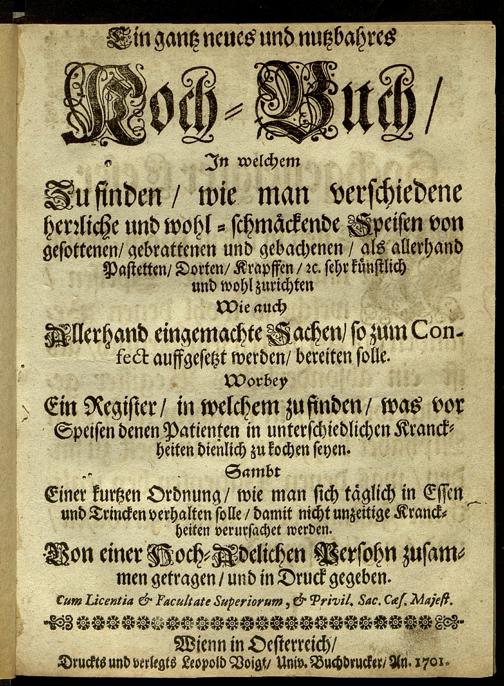 Ein gantz neues und nutzbahres
Koch-Buch/
In welchem
Zu finden/ wie man verschiedene
herrliche und wohl-schmäckende Speisen von
gesottenen/ gebrattenen und gebachenen/ als allerhand
Pastetten/ Dorten/ Krapffen/ ꝛc. sehr künstlich
und wohl zurichten
Wie auch
Allerhand eingemachte Sachen/ so zum Con-
fect auffgesetzt werden/ bereiten solle.
Worbey
Ein Register/ in welchem zu finden/ was vor
Speisen denen Patienten in unterschiedlichen Kranck-
heiten dienlich zu kochen seyen.
Sambt
Einer kurtzen Ordnung/ wie man sich täglich in Essen
und Trincken verhalten solle/ damit nicht unzeitige Kranck-
heiten verursachet werden.
Von einer Hoch-Adelichen Persohn zusam-
men getragen/ und in Druck gegeben.
Cum Licentia & Facultate Superiorum, & Privil. Sac. Cæs. Majest.
Wienn in Oesterreich/
Druckts und verlegts Leopold Voigt/ Univ. Buchdrucker/ An. 1701.